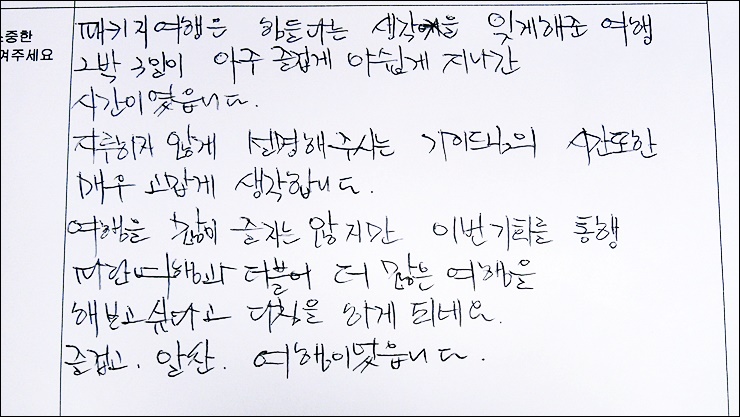 소중한
겨주세요
패키지여행은 힘들다는 생각을 잊게해준 여행
2박 3일이 아주 즐겁게 아쉽게 지나간
시간이였읍니다.
지루하지 않게 설명해주시는 가이드님의 시간또한
매우 고맙게 생각합니다.
여행을 많이 즐기는 않지만 이번기회를 통행
더불어 더 많은 여행을
해보고싶다고 다짐을 하게 되네요.
즐겁고. 알찬. 여행이였읍니다.